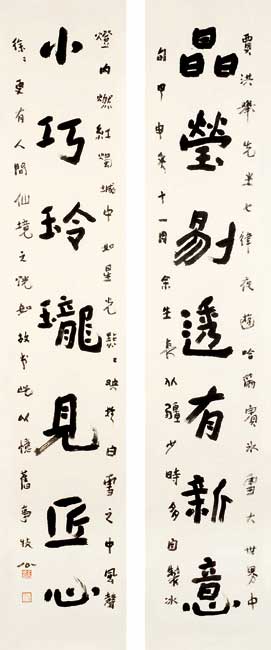 晶瑩剔透有新意
洪舉先生七律夜遊哈爾濱冰雪大世界中
句甲申冬十一月余生長北疆少時多自製冰
小巧玲瓏見匠心
燈內燃紅燭城中如星光點點映於白雪之中風聲
徐徐更有人間仙境之況如故書此以憶舊事